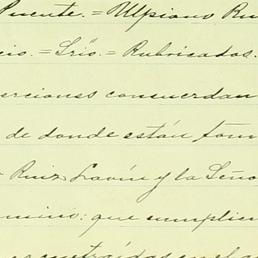 Puente. = Ulpiano Ru
cio. = Srio. = Rubricados.
erciones concuerdan
de donde están tom
Ruiz Lavín y la Seño
mino; que cumplien
contraídas en el a